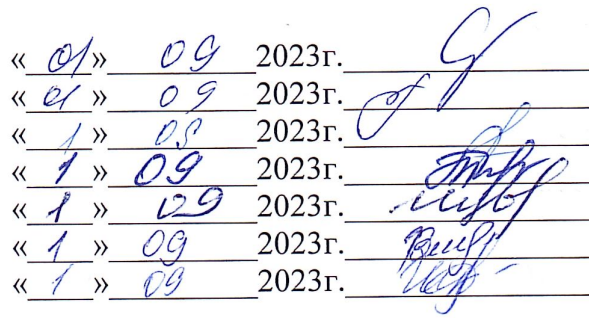 « 01 » 09 2023г.
« 01 » 09 2023г.
« 1 » 09 2023г.
« 1 » 09 2023г.
« 1 » 09 2023г.
« 1 » 09 2023г.
« 1 » 09 2023г.